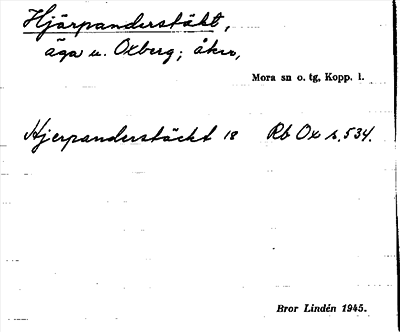 Hjärpanderstäkt,
äga u. Oxberg; åker,
Mora sn o. tg, Kopp. l.
Hjerpanderstäckt 18 Rb Ox s. 534.
Bror Lindén 1945.